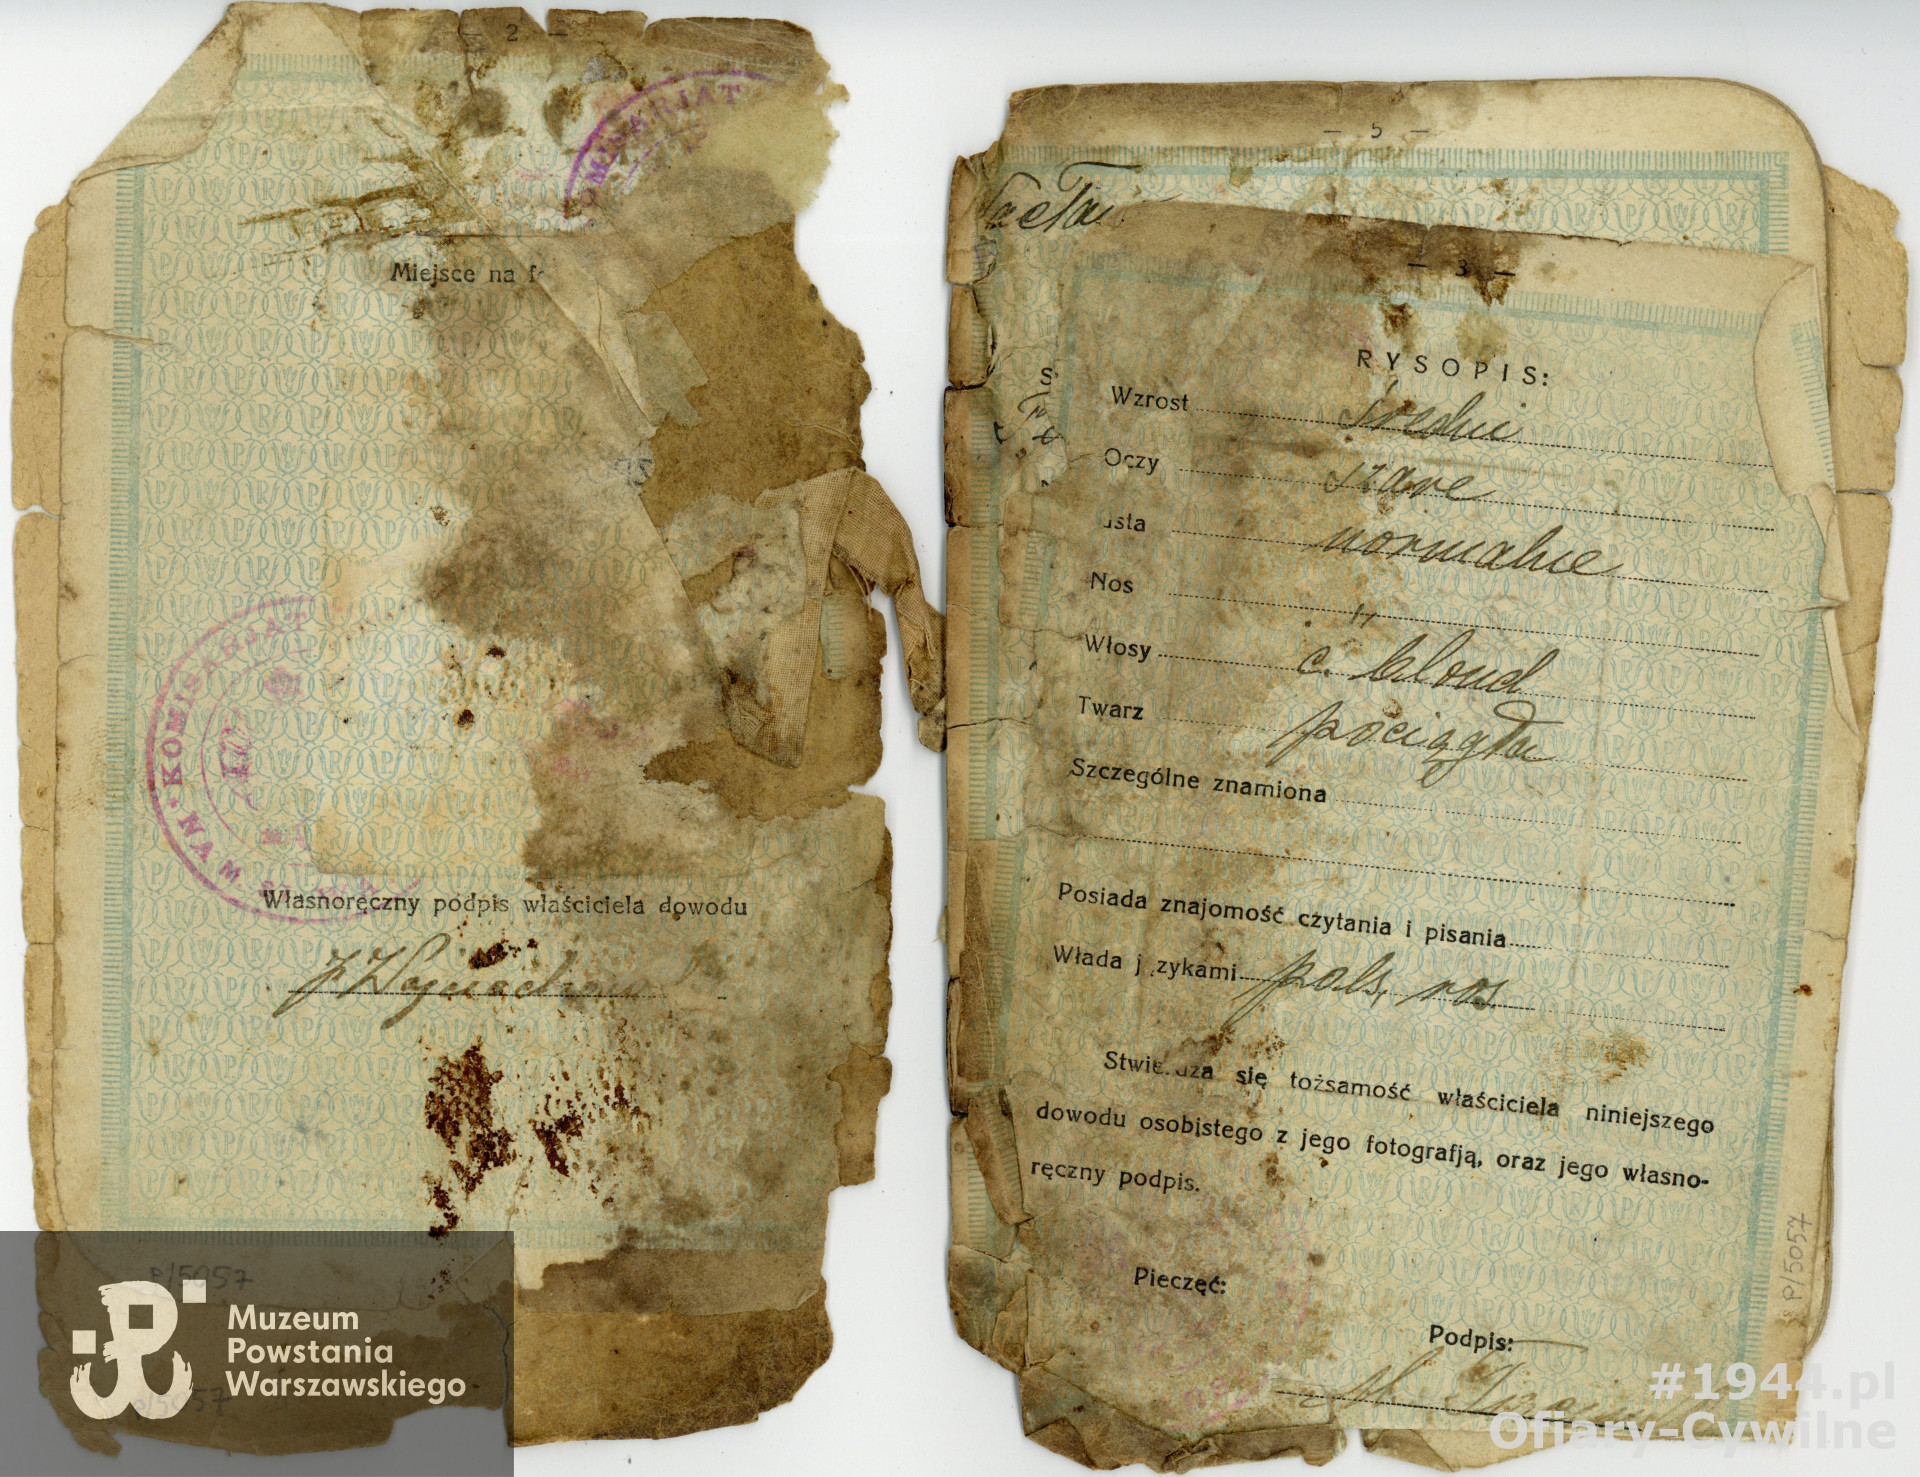 — 2 —
KOMISARIAT
Miejsce na f
KOMISARIAT
Własnoręczny podpis właściciela dowodu
P/5057
P/5057
Muzeum
Powstania
Warszawskiego
— 5 —
— 3 —
RYSOPIS:
Wzrost średni
Oczy szare
usta normalne
Nos "
Włosy c. blond
Twarz pociągła
Szczególne znamiona
Posiada znajomość czytania i pisania
Włada j zykami pols, ros.
Stwierdza się tożsamość właściciela niniejszego
dowodu osobistego z jego fotografją, oraz jego własno-
ręczny podpis.
Pieczęć:
Podpis:
P/5057
#1944.pl
Ofiary-Cywilne